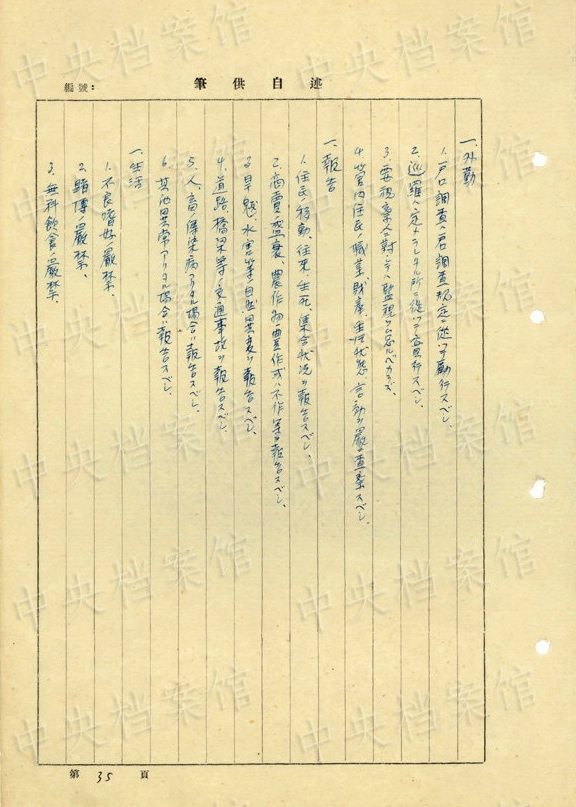 筆供自述
編號：
一、外勤
1. 戸口調査ハ戸口調査規定ニ従ヒ勵行スベシ、
2. 巡羅ハ定メラレタル所ニ従ヒ立番行スベシ、
3. 要視察人ニ対シテハ監視ヲ怠ルベカラズ、
4. 管内住民ノ職業、財産、生活状態、言動ヲ厳ニ査察スベシ、
一、報告
1. 住民ノ移動、往来、生死、集合状況ヲ報告スベシ、
2. 商賣盛衰、農作物ノ豊作或ハ不作等ヲ報告スベシ、
3. 旱魃、水害等ノ自然異変ヲ報告スベシ、
4. 道路、橋梁等ノ交通事故ヲ報告スベシ、
5. 人、畜ノ傳染病アリタル場合ハ報告スベシ、
6. 其他異常アリタル場合ハ報告スベシ、
一、生活
1. 不良嗜好ノ嚴禁、
2. 賭博ノ嚴禁、
3. 無料飲食ノ嚴禁、
第 35 頁
中央档案馆